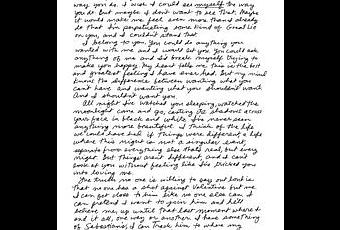 way you do. I wish I could see myself the way
you do. But maybe I don't want to see that. Maybe
it would make me feel even more than I already
do that I'm perpetrating some kind of Great Lie
on you, and I couldn't stand that.
I belong to you. You could do anything you
wanted with me and I would let you. You could ask
anything of me and I'd break myself trying to
make you happy. My heart tells me this is the best
and greatest feeling I have ever had. But my mind
knows the difference between wanting what you
can't have and wanting what you shouldn't want.
And I shouldn't want you.
All night I've watched you sleeping, watched the
moonlight come and go, casting its shadows across
your face in black and white. I've never seen
anything more beautiful. I think of the life
we could have had if things were different, a life
where this night is not a singular event,
separate from everything else that's real, but every
night. But things aren't different, and I can't
look at you without feeling like I've tricked you
into loving me.
The truth no one is willing to say out loud is
that no one has a shot against Valentine but me.
I can get close to him like no one else can. I
can pretend I want to join him and he'll
believe me, up until that last moment where I
end it all, one way or another. I have something
of Sebastian's; I can track him to where my